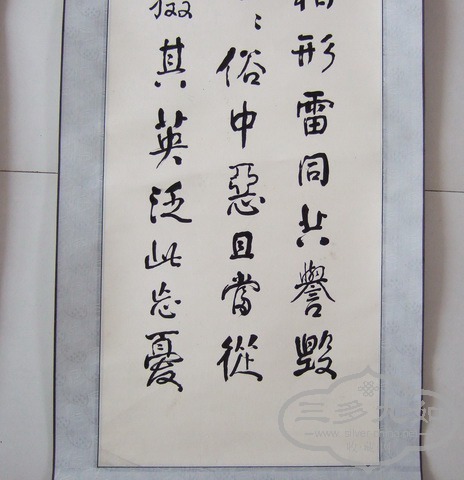 相形雷同共譽毀
俗中惡且當從
掇其英泛此忘憂
三多九如